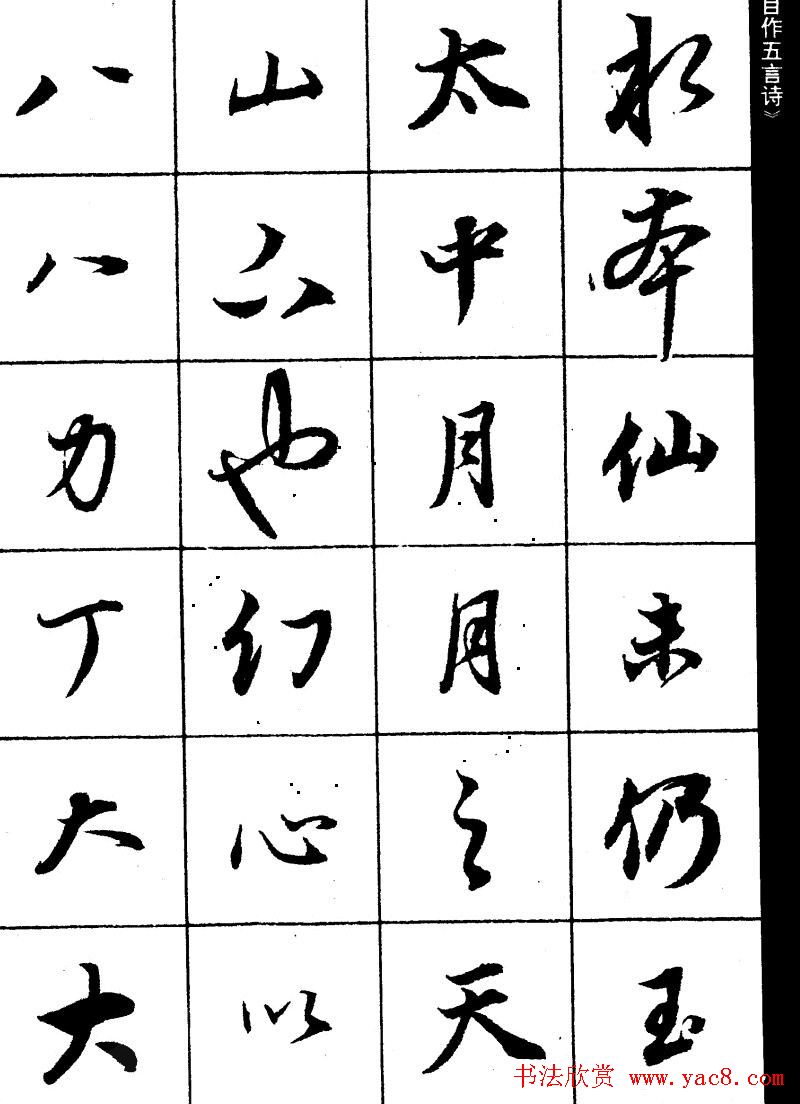 自作五言诗》
本仙未仍玉
太中月月之天
山六也幻心以
八八力丁大大
书法欣赏 www.yac8.com